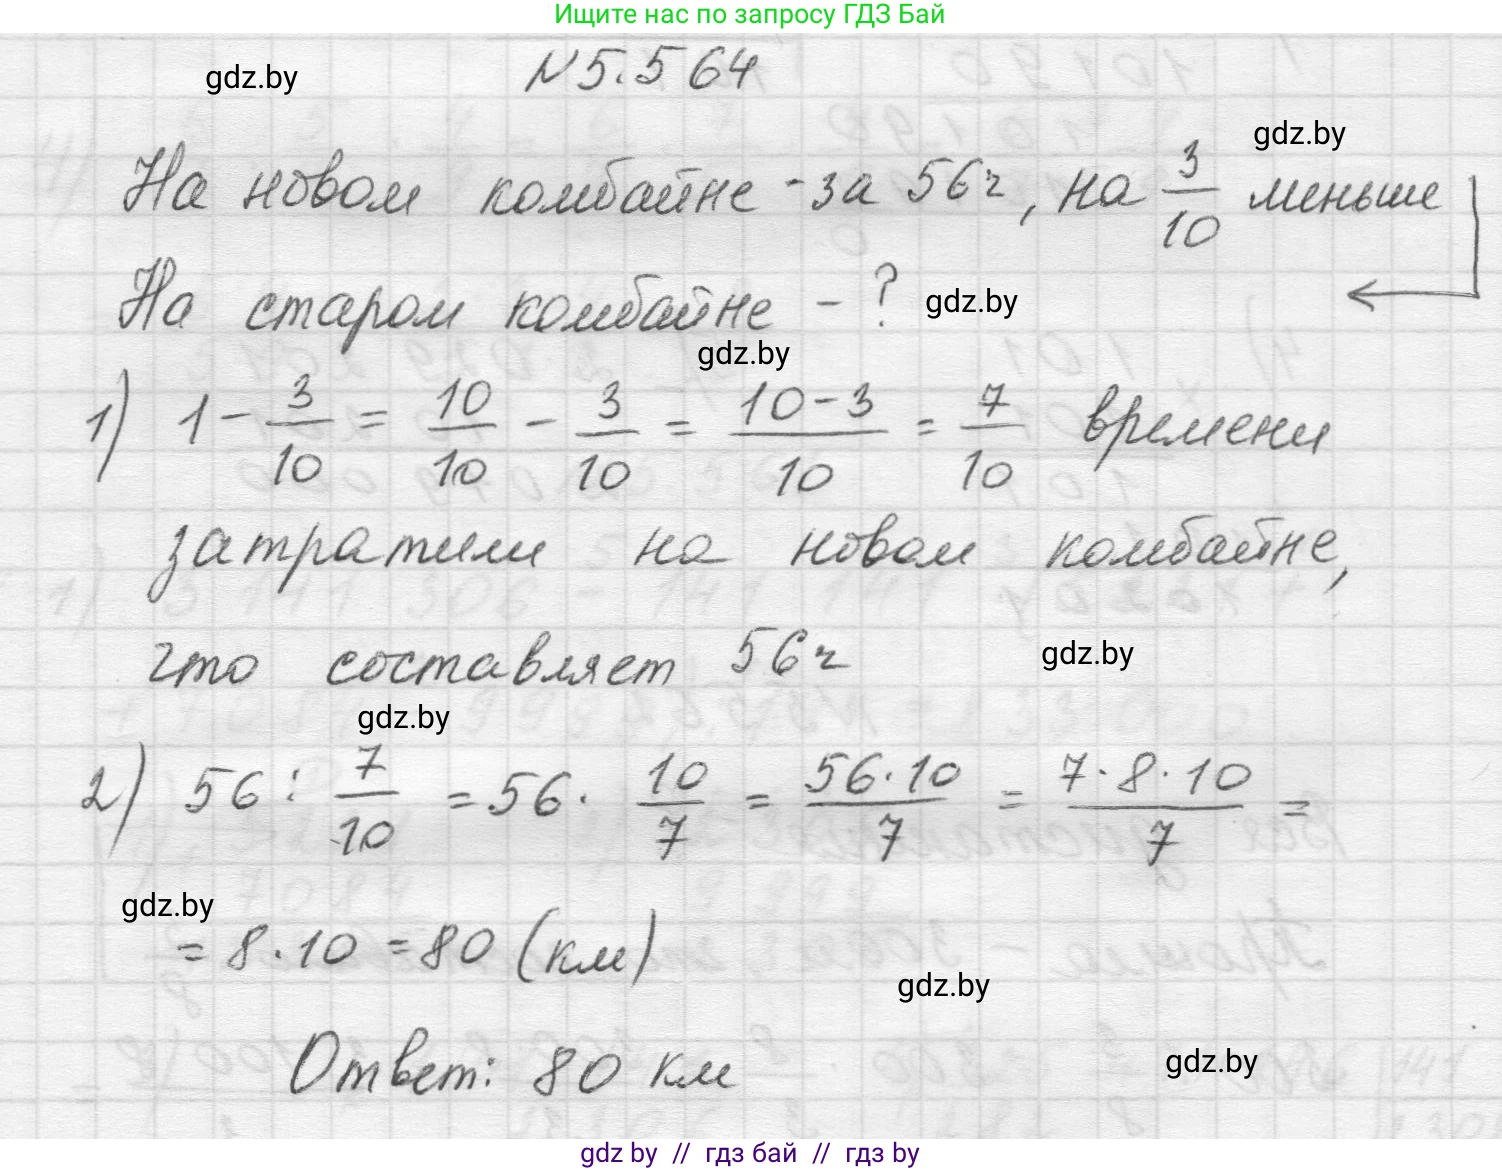 Ищите нас по запросу ГДЗ Бай
gdz.by
№5.564
gdz.by
На новом комбайне - за 56ч, на 3/10 меньше
На старом комбайне - ?
gdz.by
gdz.by
1) 1 - 3/10 = 10/10 - 3/10 = (10-3)/10 = 7/10 времени
затратили на новом комбайне,
что составляет 56ч
gdz.by
gdz.by
2) 56 : 7/10 = 56 · 10/7 = (56·10)/7 = (7·8·10)/7 =
gdz.by
= 8·10 = 80 (км)
gdz.by
Ответ: 80 км
gdz.by
gdz by // гдз бай // гдз by